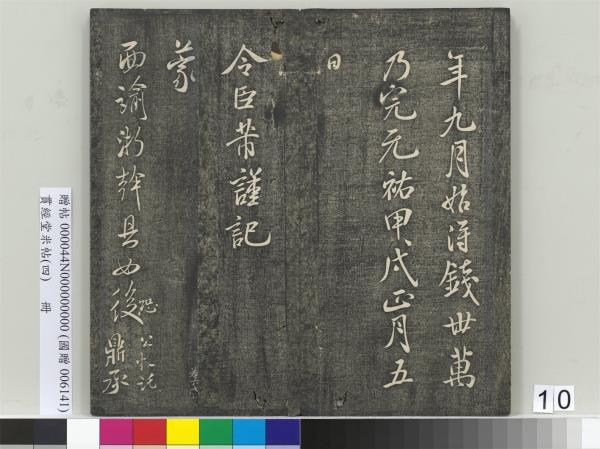 年九月始得錢卅萬
乃完元祐甲戌正月五
日
令臣芾謹記
蒙
西諭渤幹具如後恐
鼎承
贈帖 000044N000000000 (國贈 006141)
貫經堂米帖(四) 冊
10